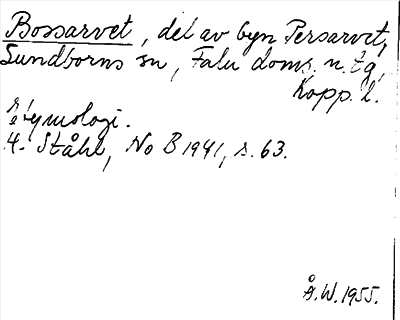 Bossarvet, del av byn Persarvet,
Sundborns sn, Falu doms. n. tg,
Kopp. l.
Etymologi.
H. Ståhl, No B 1941, s. 63.
Å.W. 1955.